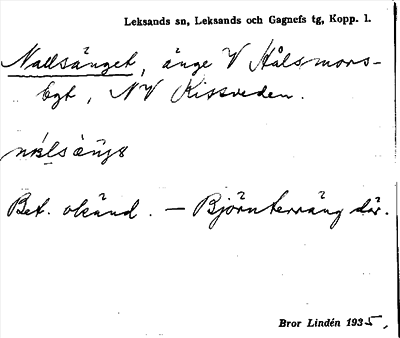 Leksands sn, Leksands och Gagnefs tg, Kopp. l.
Nallsänget, änge V Hålsmors-
bgt, NV Kissveden.
Bet. okänd. — Björnterräng där.
Bror Lindén 1935.